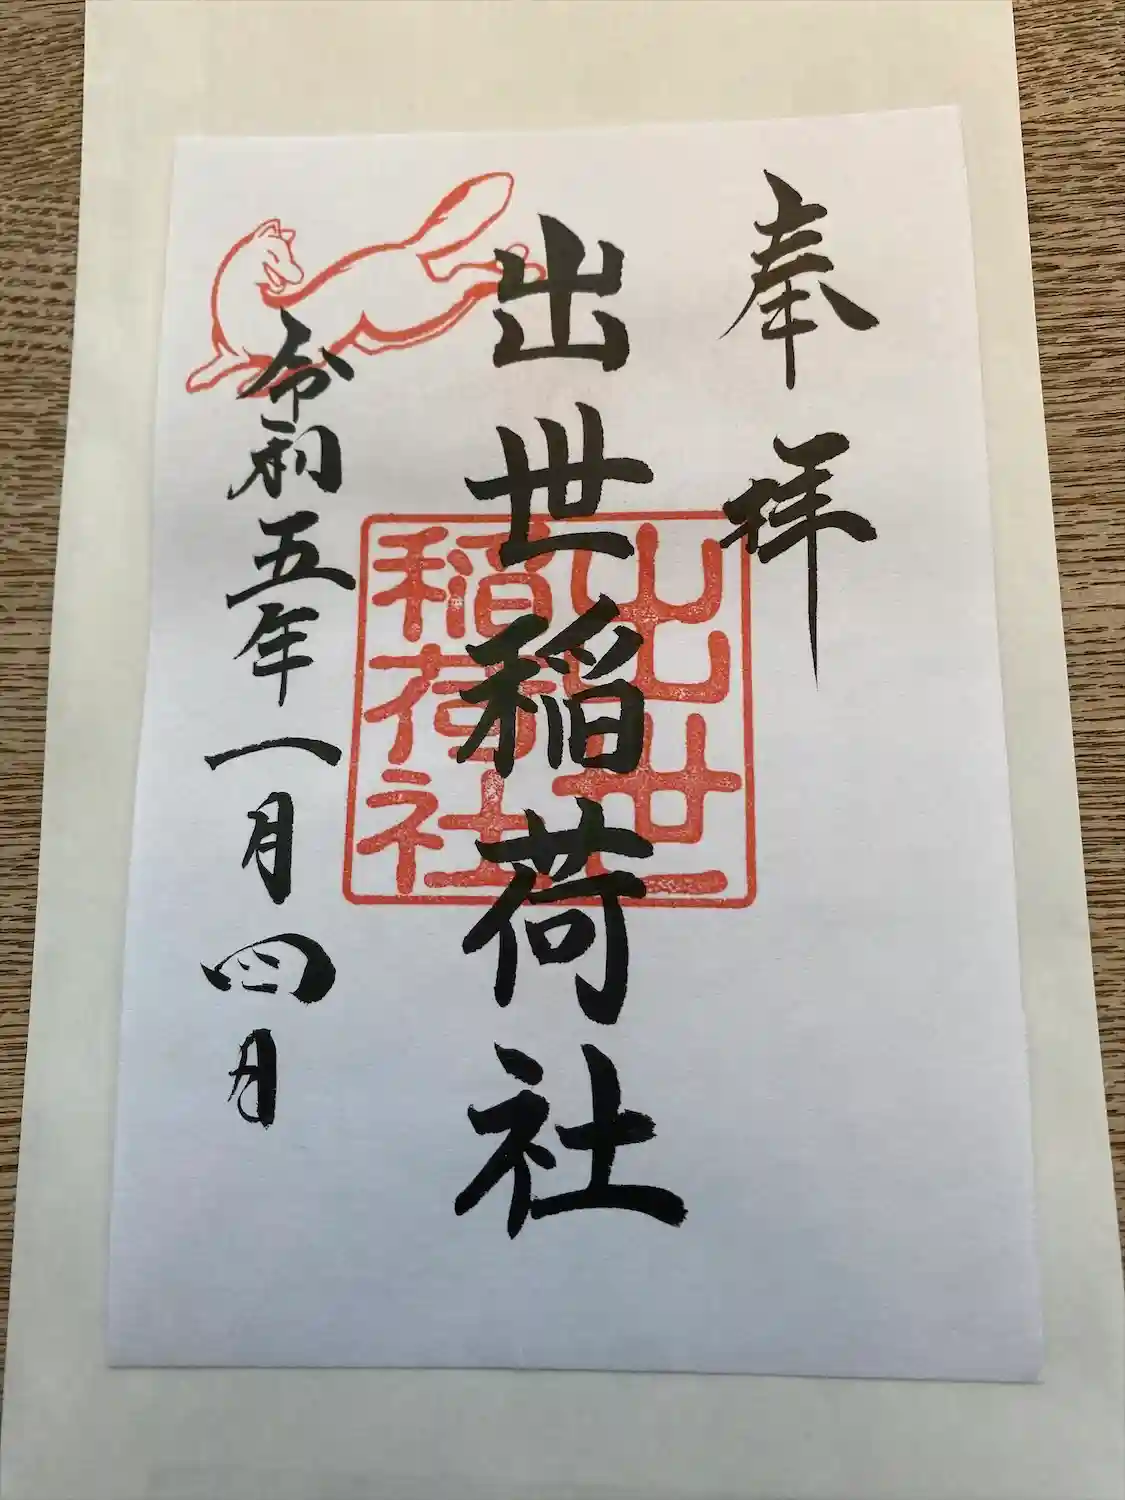 奉拝
出世稲荷社
出世
稲荷社
令和五年一月四日